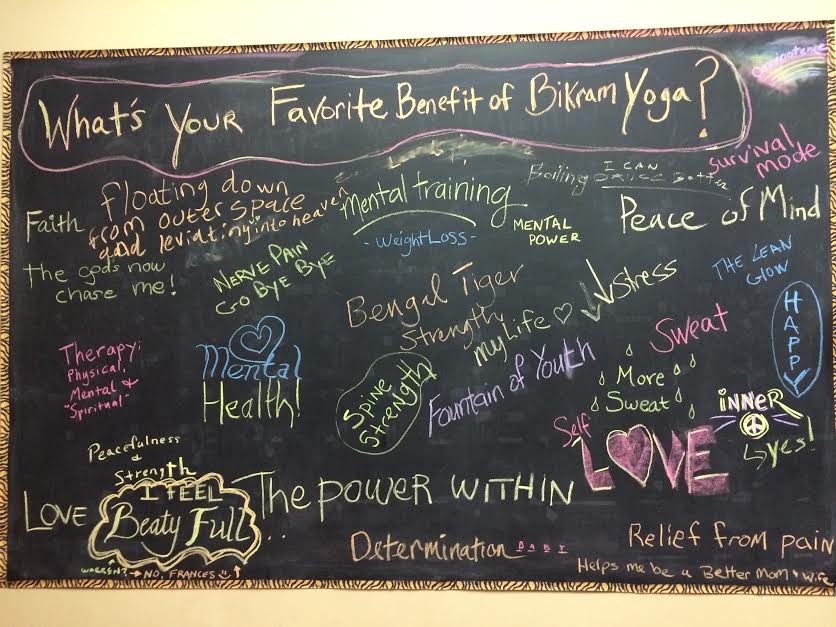 What's Your Favorite Benefit of Bikram Yoga?
Omnipotence
Survival
mode
Floating down
from outer space
and leviating into heaven
Faith
Mental training
- Weight Loss -
Boiling
I CAN
MENTAL
POWER
Peace of Mind
The gods now
chase me!
NERVE PAIN
GO BYE BYE
Bengal Tiger
Strength
My Life ♡
↓↓ Stress
THE LEAN
GLOW
HAPPY
Therapy:
Physical,
Mental &
"Spiritual"
Mental
Health!
Spine
Strength
Fountain of Youth
Sweat
More
Sweat
iNNER
↳ yes!
Self
LOVE
Peacefulness
&
Strength
LOVE
I FEEL
Beaty Full
The POWER WITHIN
..
Determination BABY
Relief from pain
Helps me be a Better Mom + Wife
WARREN? → NO, FRANCES ↑